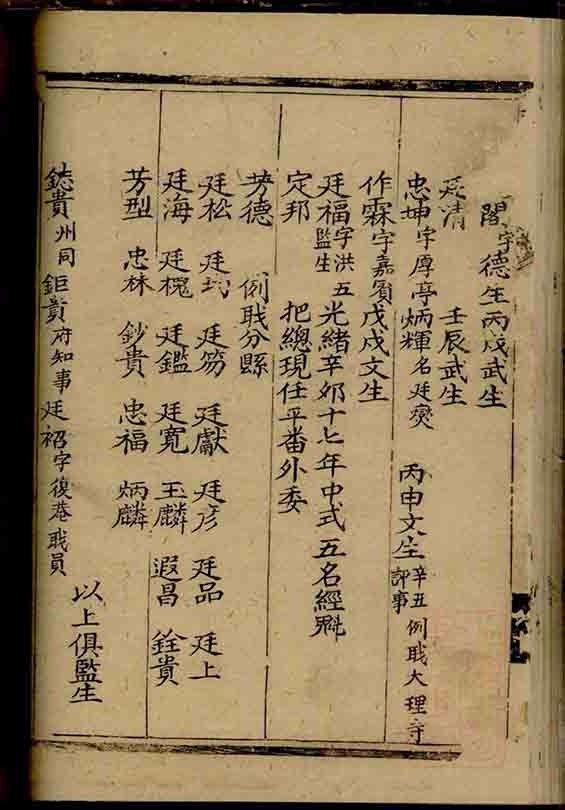 閣字德生丙戌武生
廷清 壬辰武生
忠坤字厚亭炳輝名廷爕 丙申文生辛丑例戝大理寺評事
作霖字嘉賓戊戌文生
廷福監生字洪五光緒辛夘十七年中式五名經魁
定邦 把總現任平番外委
芳德 例戝分縣
廷松 廷筠 廷笏 廷獻 廷彦 廷品 廷上
廷海 廷槐 廷鑑 廷寛 玉麟 遐昌 銓貴
芳型 忠林 鈔貴 忠福 炳麟
以上俱監生
鋕貴州同 鉅貴府知事 廷袑字復菴戝員